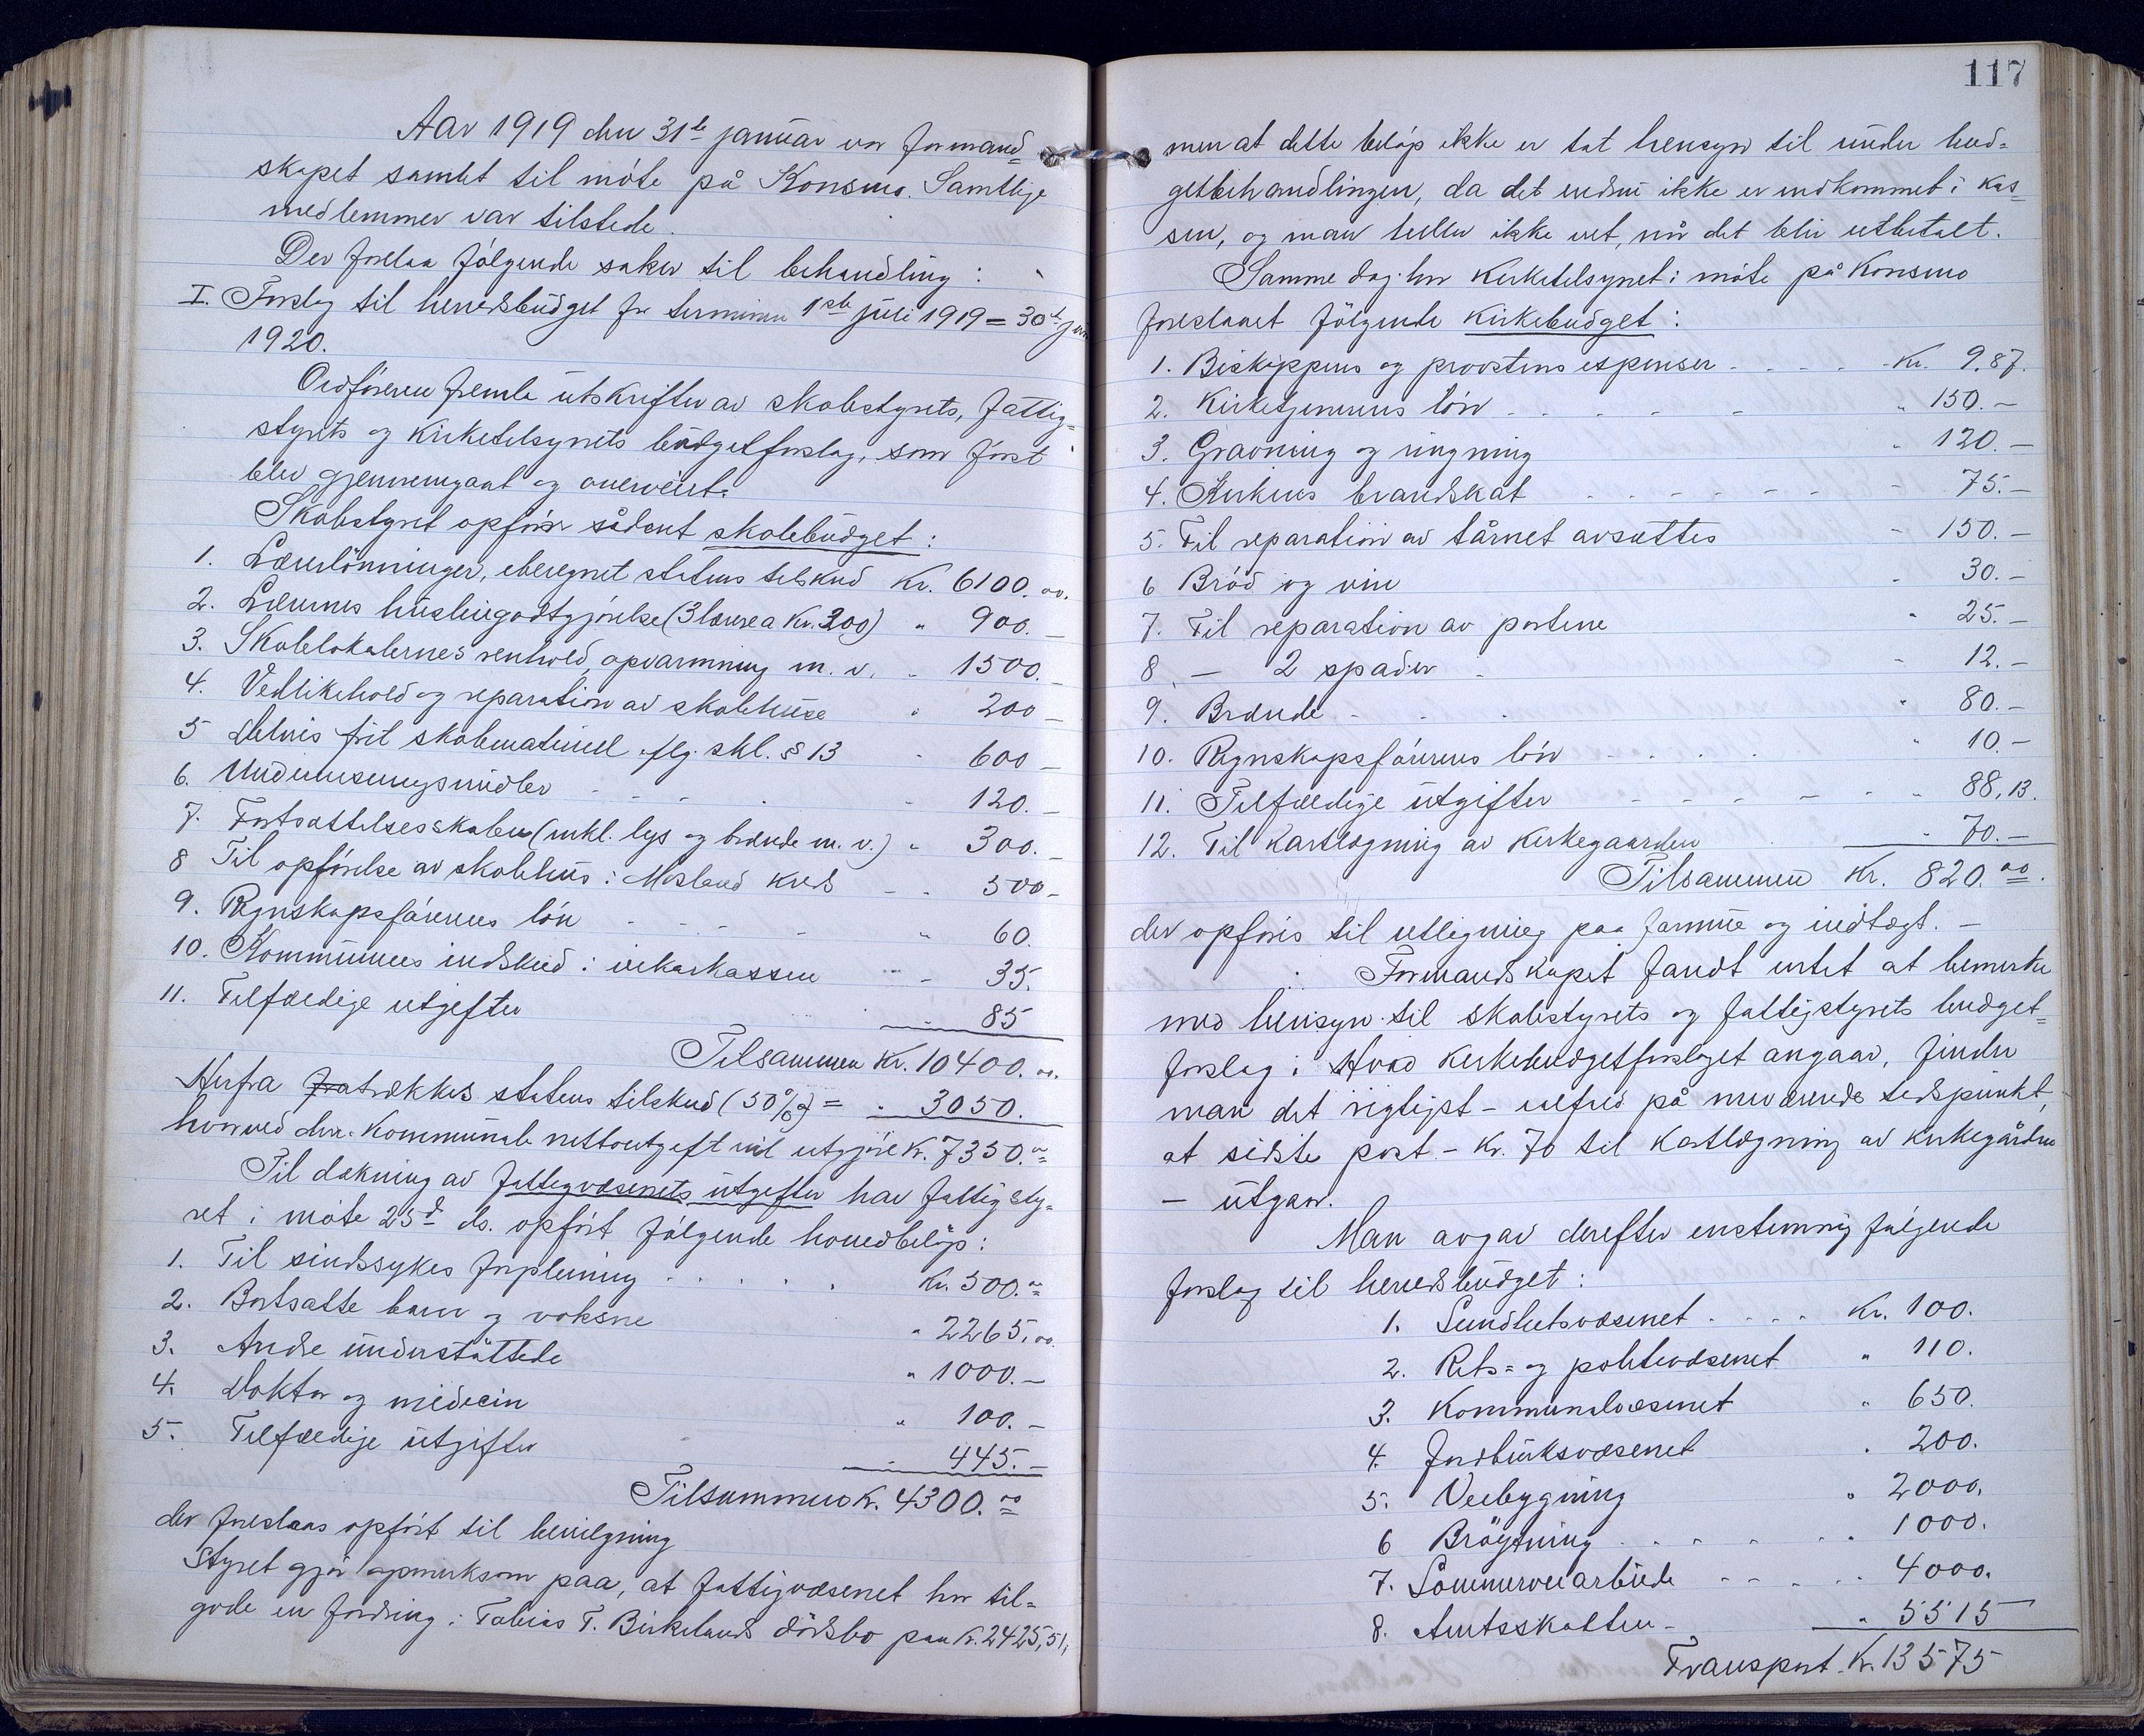 Aar 1919 den 31te januar var formand=
skapet samlet til møte på Konsmo. Samtlige
medlemmer var tilstede.
Der forelaa følgende saker til behandling:
I. Forslag til herredsbudget for terminen 1ste juli 1919 = 30te juni
1920.
Ordføreren fremla utskrifter av skolestyrets, fattig=
styrets og kirketilsynets budgetforslag, som først
blev gjennemgaat og overveiet.
Skolestyret opfører sådant skolebudget:
1. Lærerlønninger, uberegnet statens tilskud Kr. 6100.00.
2. Lærernes husleiegodtgjørelse (3 lærere a Kr. 300) " 900.—
3. Skolelokalernes renhold, opvarmning m. v. " 1500.—
4. Vedlikehold og reparation av skolehuse " 200 —
5 Delvis frit skolemateriel iflg. skl. § 13 " 600 —
6. Undervisningsmidler - - - " 120.—
7. Fortsættelsesskolen (inkl. lys og brænde m. v.) " 300.—
8 Til opførelse av skolehus i Mosland kreds - " 500 -
9. Regnskapsførerens løn - - - - " 60.
10. Kommunens indskud i vikarkassen - - 35.
11. Tilfældige utgifter 85
Tilsammen Kr. 10400.00.
Herfra fratrækkes statens tilskud (50%) = " 3050.
hvorved den kommunale nettoutgift vil utgjøre Kr. 7350.00
Til dækning av fattigvæsenets utgifter har fattigsty=
ret i møte 25de ds. opført følgende hovedbeløp:
1. Til sindssykes forpleining . . . . . Kr. 500.00
2. Bortsatte barn og voksne " 2265,00.
3. Andre understøttede " 1000.—
4. Doktor og medicin " 100.—
5. Tilfældige utgifter 445.—
Tilsammen Kr. 4300.00
der foreslaaes opført til bevilgning
Styret gjør opmerksom paa, at fattigvæsenet har til=
gode en fordring i Tobias T. Birkelands dødsbo paa Kr. 2425,51,
117
men at dette beløp ikke er tat hensyn til under bud=
getbehandlingen, da det endnu ikke er indkommet i kas=
sen, og man heller ikke vet, når det blir utbetalt.
Samme dag har kirketilsynet i møte på Konsmo
foreslaaet følgende kirkebudget:
1. Biskoppens og provstens expenser - - - - Kr. 9,87.
2. Kirketjenerens løn - - - - - " 150.—
3. Gravning og ringning " 120.—
4. Kirkens brandskat - - - - - - - 75.—
5. Til reparation av tårnet avsættes - 150.—
6 Brød og vin - 30.—
7. Til reparation av portene " 25.—
8. — 2 spader - - 12.—
9. Brænde - - - " 80.—
10. Regnskapsførerens løn - - - - " 10.—
11. Tilfældige utgifter - - - - - - " 88,13.
12. Til kartlægning av kirkegaarden " 70.—
Tilsammen Kr. 820.00.
der opføres til utligning paa formue og indtægt. —
Formandskapet fandt intet at bemerke
med hensyn til skolestyrets og fattigstyrets budget=
forslag i Hvad kirkebudgetforslaget angaar, finder
man det rigtigst – ialfald på nuværende tidspunkt,
at sidste post – Kr. 70 til kartlægning av kirkegården
– utgaar.
Man avgav derefter enstemmig følgende
forslag til herredsbudget:
1. Sundhetsvæsenet . . . . Kr. 100.
2. Rets= og politivæsenet " 110.
3. Kommunalvæsenet " 650.
4. Jordbruksvæsenet " 200.
5. Veibygning " 2000.
6 Brøytning . - - - - " 1000.
7. Sommerveiarbeide - - - - " 4000.
8. Amtsskatten - " 5515
Transport Kr. 13575